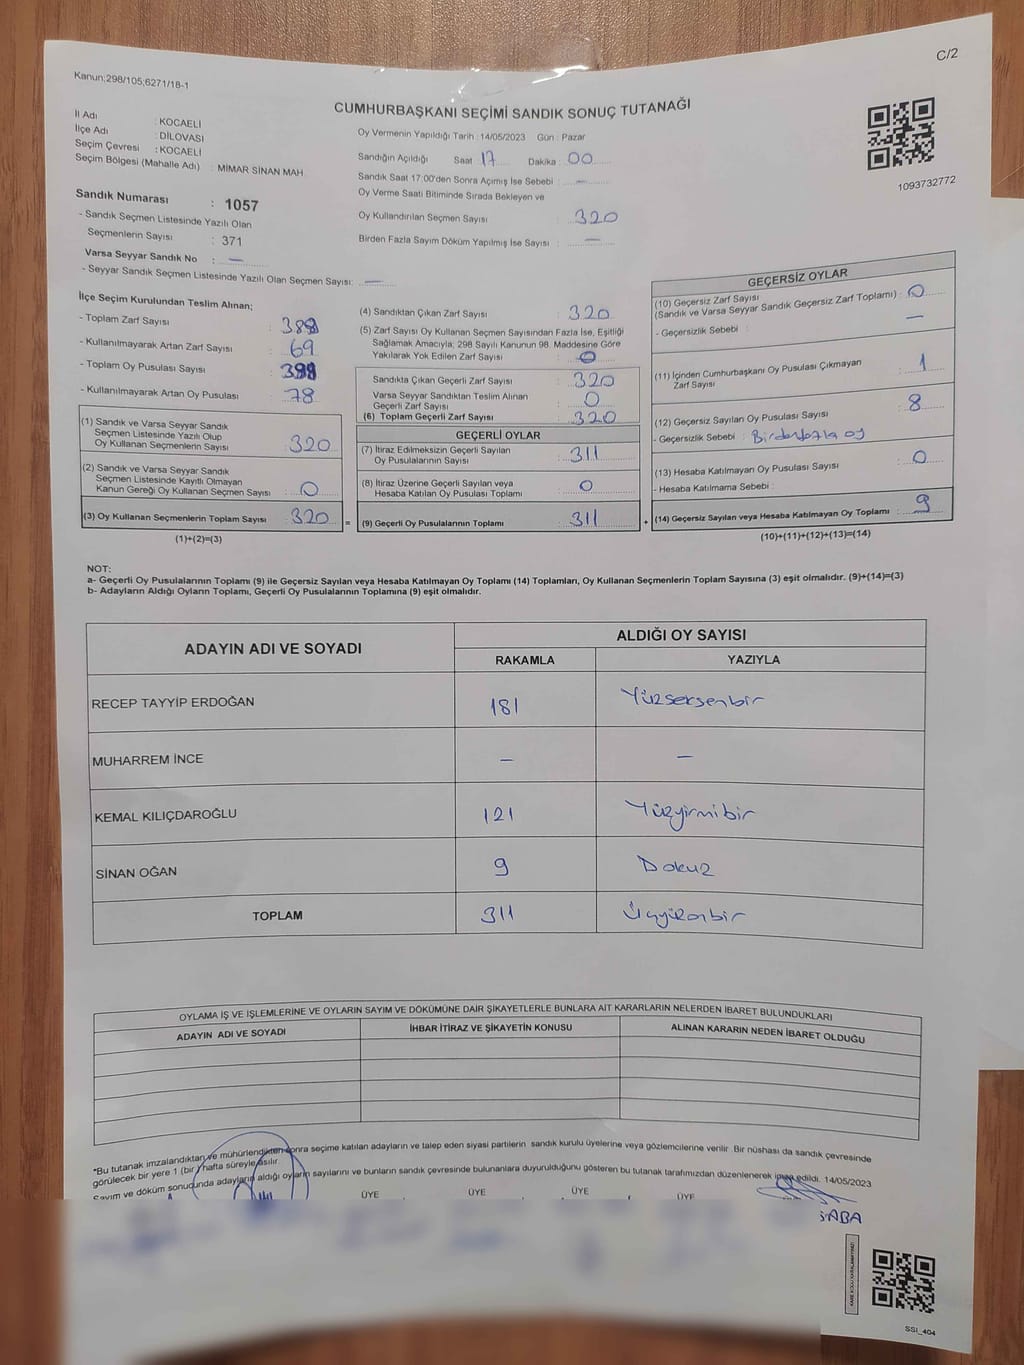 C/2
Kanun;298/105;6271/18-1
CUMHURBAŞKANI SEÇİMİ SANDIK SONUÇ TUTANAĞI
İl Adı : KOCAELİ
İlçe Adı : DİLOVASI
Seçim Çevresi : KOCAELİ
Seçim Bölgesi (Mahalle Adı) : MİMAR SİNAN MAH.
Sandık Numarası : 1057
- Sandık Seçmen Listesinde Yazılı Olan
Seçmenlerin Sayısı : 371
Varsa Seyyar Sandık No : —
- Seyyar Sandık Seçmen Listesinde Yazılı Olan Seçmen Sayısı: —
Oy Vermenin Yapıldığı Tarih : 14/05/2023 Gün : Pazar
Sandığın Açıldığı Saat 17 Dakika : 00
Sandık Saat 17:00'den Sonra Açımış İse Sebebi : —
Oy Verme Saati Bitiminde Sırada Bekleyen ve
Oy Kullandırılan Seçmen Sayısı : 320
Birden Fazla Sayım Döküm Yapılmış İse Sayısı : —
1093732772
İlçe Seçim Kurulundan Teslim Alınan;
- Toplam Zarf Sayısı :
- Kullanılmayarak Artan Zarf Sayısı : 69
- Toplam Oy Pusulası Sayısı :
- Kullanılmayarak Artan Oy Pusulası : 78
(1) Sandık ve Varsa Seyyar Sandık
Seçmen Listesinde Yazılı Olup
Oy Kullanan Seçmenlerin Sayısı : 320
(2) Sandık ve Varsa Seyyar Sandık
Seçmen Listesinde Kayıtlı Olmayan
Kanun Gereği Oy Kullanan Seçmen Sayısı : 0
(3) Oy Kullanan Seçmenlerin Toplam Sayısı : 320 =
(1)+(2)=(3)
(4) Sandıktan Çıkan Zarf Sayısı : 320
(5) Zarf Sayısı Oy Kullanan Seçmen Sayısından Fazla İse, Eşitliği
Sağlamak Amacıyla; 298 Sayılı Kanunun 98. Maddesine Göre
Yakılarak Yok Edilen Zarf Sayısı : 0
Sandıkta Çıkan Geçerli Zarf Sayısı : 320
Varsa Seyyar Sandıktan Teslim Alınan
Geçerli Zarf Sayısı : 0
(6) Toplam Geçerli Zarf Sayısı : 320
GEÇERLİ OYLAR
(7) İtiraz Edilmeksizin Geçerli Sayılan
Oy Pusulalarının Sayısı : 311
(8) İtiraz Üzerine Geçerli Sayılan veya
Hesaba Katılan Oy Pusulası Toplamı : 0
(9) Geçerli Oy Pusulalarının Toplamı : 311 +
GEÇERSİZ OYLAR
(10) Geçersiz Zarf Sayısı
(Sandık ve Varsa Seyyar Sandık Geçersiz Zarf Toplamı) : 0
- Geçersizlik Sebebi : —
(11) İçinden Cumhurbaşkanı Oy Pusulası Çıkmayan
Zarf Sayısı : 1
(12) Geçersiz Sayılan Oy Pusulası Sayısı : 8
- Geçersizlik Sebebi : Birdenfazla oy
(13) Hesaba Katılmayan Oy Pusulası Sayısı : 0
- Hesaba Katılmama Sebebi :
(14) Geçersiz Sayılan veya Hesaba Katılmayan Oy Toplamı : 9
(10)+(11)+(12)+(13)=(14)
NOT:
a- Geçerli Oy Pusulalarının Toplamı (9) ile Geçersiz Sayılan veya Hesaba Katılmayan Oy Toplamı (14) Toplamları, Oy Kullanan Seçmenlerin Toplam Sayısına (3) eşit olmalıdır. (9)+(14)=(3)
b- Adayların Aldığı Oyların Toplamı, Geçerli Oy Pusulalarının Toplamına (9) eşit olmalıdır.
ADAYIN ADI VE SOYADI
ALDIĞI OY SAYISI
RAKAMLA YAZIYLA
RECEP TAYYİP ERDOĞAN 181 Yüzseksenbir
MUHARREM İNCE — —
KEMAL KILIÇDAROĞLU 121 Yüzyirmibir
SİNAN OĞAN 9 Dokuz
TOPLAM 311 Üçyüzonbir
OYLAMA İŞ VE İŞLEMLERİNE VE OYLARIN SAYIM VE DÖKÜMÜNE DAİR ŞİKAYETLERLE BUNLARA AİT KARARLARIN NELERDEN İBARET BULUNDUKLARI
ADAYIN ADI VE SOYADI İHBAR İTİRAZ VE ŞİKAYETİN KONUSU ALINAN KARARIN NEDEN İBARET OLDUĞU
*Bu tutanak imzalandıktan ve mühürlendikten sonra seçime katılan adayların ve talep eden siyasi partilerin sandık kurulu üyelerine veya gözlemcilerine verilir. Bir nüshası da sandık çevresinde
görülecek bir yere 1 (bir) hafta süreyle asılır.
Sayım ve döküm sonucunda adayların aldığı oyların sayılarını ve bunların sandık çevresinde bulunanlara duyurulduğunu gösteren bu tutanak tarafımızdan düzenlenerek imza edildi. 14/05/2023
ÜYE ÜYE ÜYE ÜYE
SSI_404